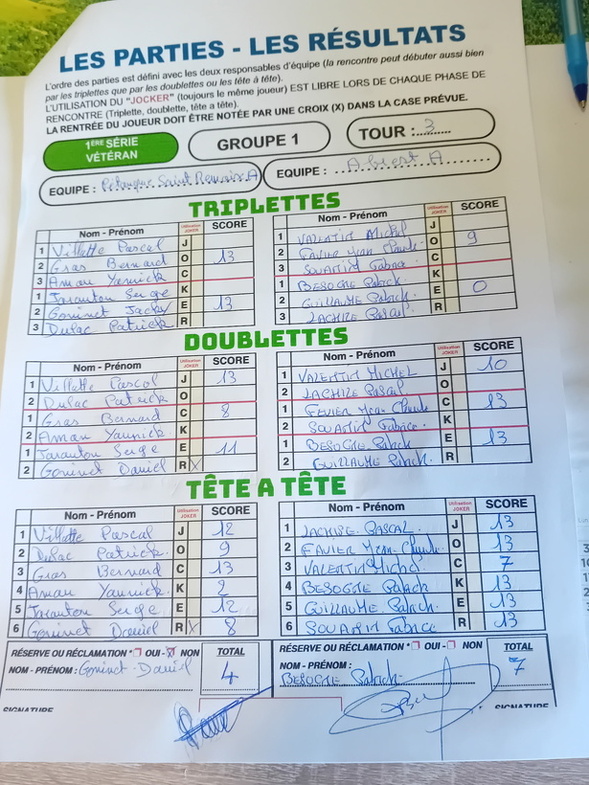 LES PARTIES - LES RÉSULTATS
L'ordre des parties est défini avec les deux responsables d'équipe (la rencontre peut débuter aussi bien
par les triplettes que par les doublettes ou les tête à tête).
L'UTILISATION DU "JOCKER" (toujours le même joueur) EST LIBRE LORS DE CHAQUE PHASE DE
RENCONTRE (Triplette, doublette, tête a tête).
LA RENTRÉE DU JOUEUR DOIT ÊTRE NOTÉE PAR UNE CROIX (X) DANS LA CASE PRÉVUE.
1ERE SÉRIE
VÉTÉRAN
GROUPE 1
TOUR : 3
EQUIPE : Pétanque Saint Romain A
EQUIPE : A
TRIPLETTES
Nom - Prénom Utilisation JOKER SCORE
1 Villatte Pascal J
2 Gras Bernard O 13
3 Aman Yannick C
1 Taranton Serge K
2 Goninet E 13
3 Dulac Patrick R
Nom - Prénom Utilisation JOKER SCORE
1 VALENTIN Michel J
2 FAVIER Jean Claude O 9
3 Fabrice C
1 BESOGNE Patrick K
2 GUILLAUME Patrick E 0
3 Pascal R
DOUBLETTES
Nom - Prénom Utilisation JOKER SCORE
1 Villatte Pascal J 13
2 Dulac Patrick O
1 Gras Bernard C 8
2 Aman Yannick K
1 Taranton Serge E 11
2 Goninet Daniel R X
Nom - Prénom Utilisation JOKER SCORE
1 VALENTIN MICHEL J 10
2 Pascal O
1 FAVIER Jean Claude C 13
2 Fabrice K
1 BESOGNE Patrick E 13
2 GUILLAUME Patrick R
TÊTE A TÊTE
Nom - Prénom Utilisation JOKER SCORE
1 Villatte Pascal J 12
2 Dulac Patrick O 9
3 Gras Bernard C 13
4 Aman Yannick K 2
5 Taranton Serge E 12
6 Goninet Daniel R X 8
Nom - Prénom Utilisation JOKER SCORE
1 PASCAL J 13
2 FAVIER Jean Claude O 13
3 VALENTIN Michel C 7
4 BESOGNE Patrick K 13
5 GUILLAUME Patrick E 13
6 Fabrice R 13
RÉSERVE OU RÉCLAMATION * OUI - NON TOTAL
NOM - PRÉNOM : Goninet Daniel 4
RÉSERVE OU RÉCLAMATION * OUI - NON TOTAL
NOM - PRÉNOM :
BESOGNE Patrick 7
SIGNATURE
SIGNATURE